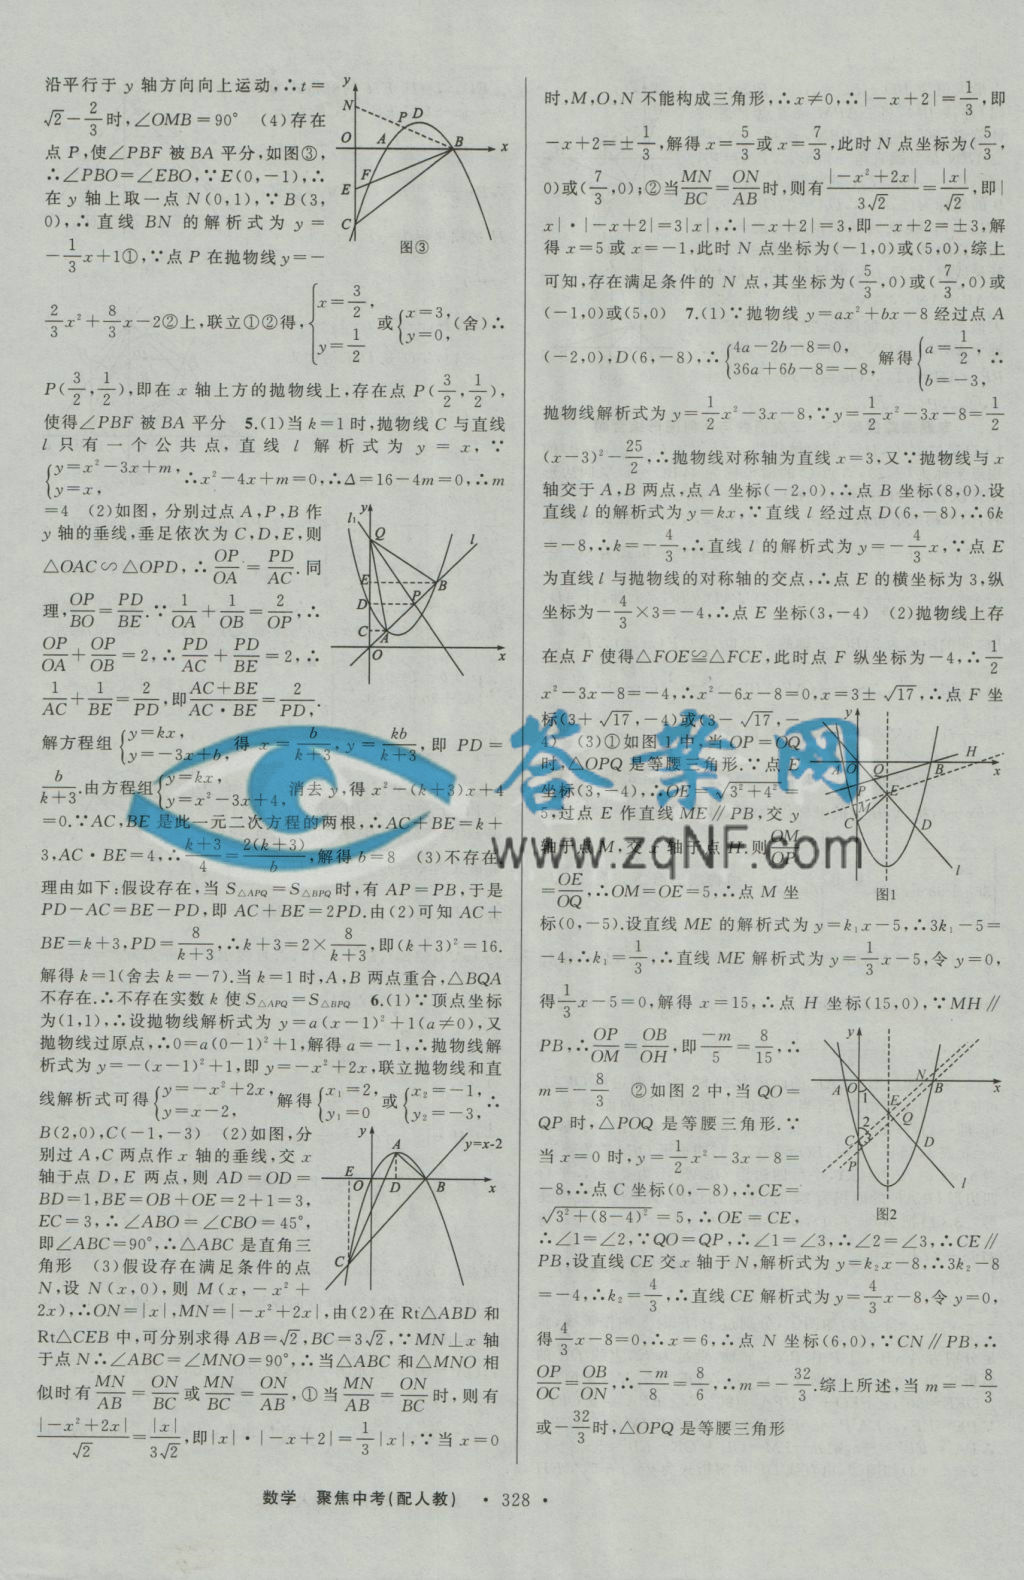 沿平行于 y 轴方向向上运动,∴t=
√2-2/3时,∠OMB=90° (4)存在
点 P,使∠PBF 被 BA 平分,如图③,
∴∠PBO=∠EBO,∵E(0,-1),∴
在 y 轴上取一点 N(0,1),∵B(3,
0),∴直线 BN 的解析式为 y=
-1/3x+1①,∵点 P 在抛物线 y=-
2/3x²+8/3x-2②上,联立①②得,{x=3/2, y=1/2 或{x=3, y=0,(舍)∴
P(3/2,1/2),即在 x 轴上方的抛物线上,存在点 P(3/2,1/2),
使得∠PBF 被 BA 平分 5.(1)当 k=1 时,抛物线 C 与直线
l 只有一个公共点,直线 l 解析式为 y=x,∵
{y=x²-3x+m, y=x, ∴x²-4x+m=0,∴Δ=16-4m=0,∴m
=4 (2)如图,分别过点 A,P,B 作
y 轴的垂线,垂足依次为 C,D,E,则
△OAC∽△OPD,∴OP/OA=PD/AC.同
理,OP/BO=PD/BE.∵1/OA+1/OB=2/OP,∴
OP/OA+OP/OB=2,∴PD/AC+PD/BE=2,∴
1/AC+1/BE=2/PD,即AC+BE/AC·BE=2/PD,.
解方程组{y=kx, y=-3x+b,得 x=b/k+3,y=kb/k+3,即 PD=
b/k+3.由方程组{y=kx, y=x²-3x+4, 消去 y,得 x²-(k+3)x+4
=0.∵AC,BE 是此一元二次方程的两根,∴AC+BE=k+
3,AC·BE=4,∴k+3/4=2(k+3)/b,解得 b=8 (3)不存在.
理由如下:假设存在,当 S△APQ=S△BPQ时,有 AP=PB,于是
PD-AC=BE-PD,即 AC+BE=2PD.由(2)可知 AC+
BE=k+3,PD=8/k+3,∴k+3=2×8/k+3,即(k+3)²=16.
解得 k=1(舍去 k=-7).当 k=1 时,A,B 两点重合,△BQA
不存在.∴不存在实数 k 使 S△APQ=S△BPQ 6.(1)∵顶点坐标
为(1,1),∴设抛物线解析式为 y=a(x-1)²+1(a≠0),又
抛物线过原点,∴0=a(0-1)²+1,解得 a=-1,∴抛物线解
析式为 y=-(x-1)²+1,即 y=-x²+2x,联立抛物线和直
线解析式可得{y=-x²+2x, y=x-2, 解得{x₁=2, y₁=0 或{x₂=-1, y₂=-3,∴
B(2,0),C(-1,-3) (2)如图,分
别过 A,C 两点作 x 轴的垂线,交 x
轴于点 D,E 两点,则 AD=OD=
BD=1,BE=OB+OE=2+1=3,
EC=3,∴∠ABO=∠CBO=45°,
即∠ABC=90°,∴△ABC 是直角三
角形 (3)假设存在满足条件的点
N,设 N(x,0),则 M(x,-x²+
2x),∴ON=|x|,MN=|-x²+2x|,由(2)在 Rt△ABD 和
Rt△CEB 中,可分别求得 AB=√2,BC=3√2,∵MN⊥x 轴
于点 N∴∠ABC=∠MNO=90°,∴当△ABC 和△MNO 相
似时有MN/AB=ON/BC或MN/BC=ON/AB,①当MN/AB=ON/BC时,则有
|-x²+2x|/√2=|x|/3√2,即|x|·|-x+2|=1/3|x|,∵当 x=0
y N P D O A B x E F C
图③
l₁ y Q l E B D P C A O x
y A y=x-2 E O D B x C
时,M,O,N 不能构成三角形,∴x≠0,∴|-x+2|=1/3,即
-x+2=±1/3,解得 x=5/3或 x=7/3,此时 N 点坐标为(5/3,
0)或(7/3,0);②当MN/BC=ON/AB时,则有|-x²+2x|/3√2=|x|/√2,即|
x|·|-x+2|=3|x|,∴|-x+2|=3,即-x+2=±3,解
得 x=5 或 x=-1,此时 N 点坐标为(-1,0)或(5,0),综上
可知,存在满足条件的 N 点,其坐标为(5/3,0)或(7/3,0)或
(-1,0)或(5,0) 7.(1)∵抛物线 y=ax²+bx-8 经过点 A
(-2,0),D(6,-8),∴{4a-2b-8=0, 36a+6b-8=-8,解得{a=1/2, b=-3,∴
抛物线解析式为 y=1/2x²-3x-8,∵y=1/2x²-3x-8=1/2
(x-3)²-25/2,∴抛物线对称轴为直线 x=3,又∵抛物线与 x
轴交于 A,B 两点,点 A 坐标(-2,0),∴点 B 坐标(8,0).设
直线 l 的解析式为 y=kx,∵直线 l 经过点 D(6,-8),∴6k
=-8,∴k=-4/3,∴直线 l 的解析式为 y=-4/3x,∵点 E
为直线 l 与抛物线的对称轴的交点,∴点 E 的横坐标为 3,纵
坐标为-4/3×3=-4,∴点 E 坐标(3,-4) (2)抛物线上存
在点 F 使得△FOE≌△FCE,此时点 F 纵坐标为-4,∴1/2
x²-3x-8=-4,∴x²-6x-8=0,x=3±√17,∴点 F 坐
标(3+√17,-4)或(3-√17,-
4) (3)①如图 1 中,当 OP=OQ
时,△OPQ 是等腰三角形.∵点 E
坐标(3,-4),∴OE=√3²+4²=
5,过点 E 作直线 ME∥PB,交 y
轴于点 M,交 x 轴于点 H.则OM/OP
=OE/OQ,∴OM=OE=5,∴点 M 坐
标(0,-5).设直线 ME 的解析式为 y=k₁x-5,∴3k₁-5=
-4,∴k₁=1/3,∴直线 ME 解析式为 y=1/3x-5,令 y=0,
得1/3x-5=0,解得 x=15,∴点 H 坐标(15,0),∵MH∥
PB,∴OP/OM=OB/OH,即-m/5=8/15,∴
m=-8/3 ②如图 2 中,当 QO=
QP 时,△POQ 是等腰三角形.∵
当 x=0 时,y=1/2x²-3x-8=
-8,∴点 C 坐标(0,-8),∴CE=
√3²+(8-4)²=5,∴OE=CE,
∴∠1=∠2,∵QO=QP,∴∠1=∠3,∴∠2=∠3,∴CE∥
PB,设直线 CE 交 x 轴于 N,解析式为 y=k₂x-8,∴3k₂-8
=-4,∴k₂=4/3,∴直线 CE 解析式为 y=4/3x-8,令 y=0,
得4/3x-8=0,∴x=6,∴点 N 坐标(6,0),∵CN∥PB,∴
OP/OC=OB/ON,∴-m/8=8/6,∴m=-32/3.综上所述,当 m=-8/3
或-32/3时,△OPQ 是等腰三角形
y H A O Q B x P E M C D l
图1
y N A O B x 1 E Q 2 C D P 3 l
图2
答案网
www.zqNF.com
数学 聚焦中考(配人教) · 328 ·